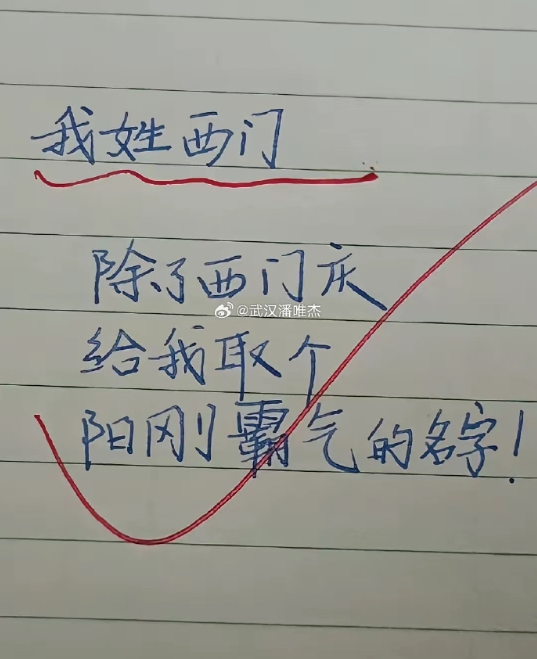 我姓西门
除了西门庆
@武汉潘唯杰
给我取个
阳刚霸气的名字!